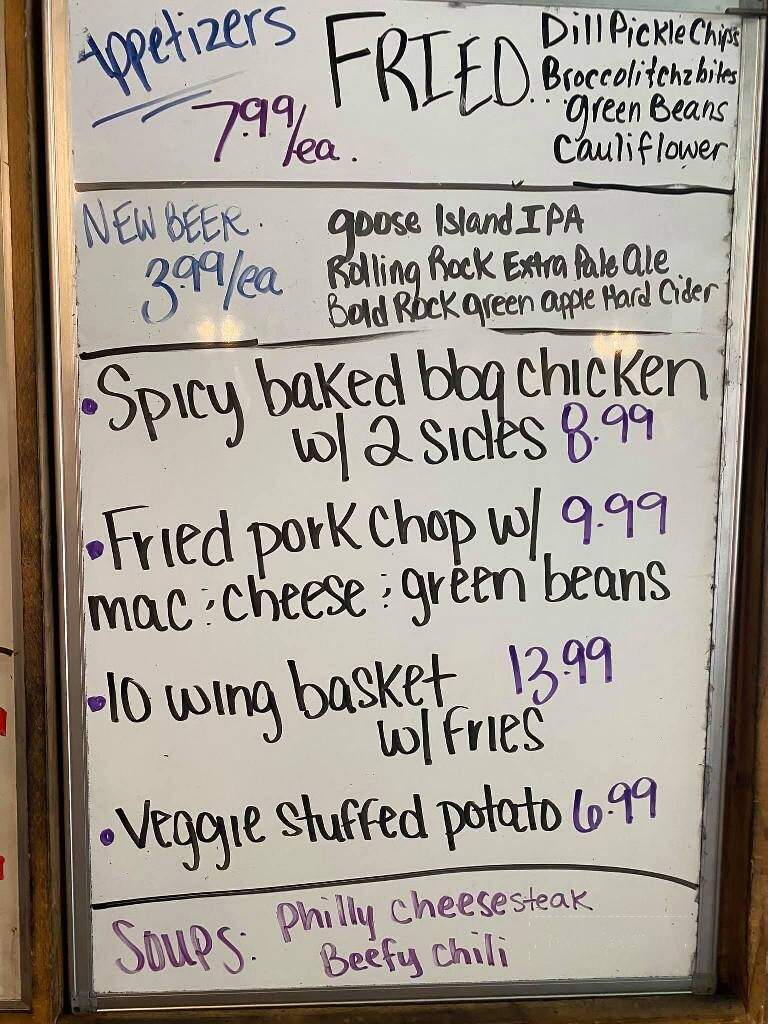 Appetizers
7.99/ea.
FRIED...
Dill Pickle Chips
Broccoli & chz bites
green Beans
Cauliflower
NEW BEER.
3.99/ea
goose Island IPA
Rolling Rock Extra Pale Ale
Bold Rock green apple Hard Cider
•Spicy baked bbq chicken
w/ 2 sides 8.99
•Fried pork chop w/ 9.99
mac & cheese & green beans
•10 wing basket 13.99
w/ fries
•Veggie stuffed potato 6.99
Soups: Philly cheesesteak
Beefy chili